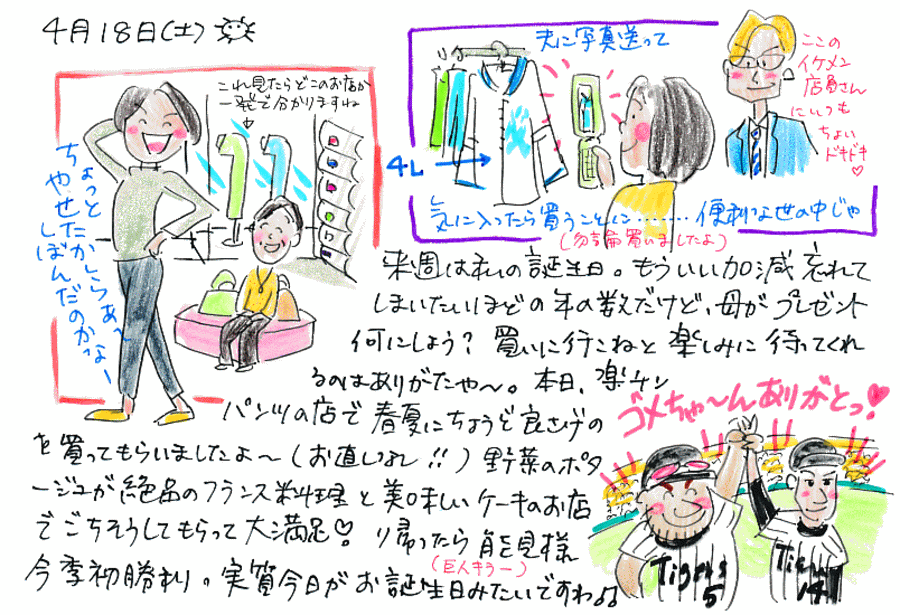 4月18日(土)
これ見たらどこのお店か
一発で分かりますね
ちょっとたかしらあ、
やせてしぼんだのかなー
夫に写真送って
4L
気に入ったら買うことに………便利な世の中じゃ
(勿論買いましたよ)
ここの
イケメン
店員さん
にいつも
ちょい
ドキドキ
来週は私の誕生日。もういい加減忘れて
しまいたいほどの年の数だけど、母がプレゼント
何にしよう?買いに行こねと楽しみに待ってくれ
るのはありがたや〜。本日、楽チン
パンツの店で春夏にちょうど良さげの
を買ってもらいましたよ〜(お直しなし!!)野菜のポタ
ージュが絶品のフランス料理と美味しいケーキのお店
でごちそうしてもらって大満足♡!帰ったら能見様
(巨人キラー)
今季初勝利。実質今日がお誕生日みたいですわ♪♪
ゴメちゃ〜んありがとっ!♡
Tigers
5
Tigers
14